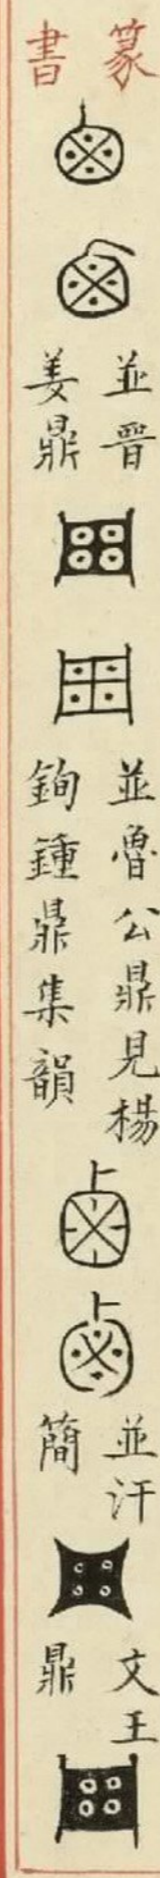 篆
書
並晉
姜鼎
並魯公鼎見楊
鉤鍾鼎集韻
並汗
簡
文王
鼎